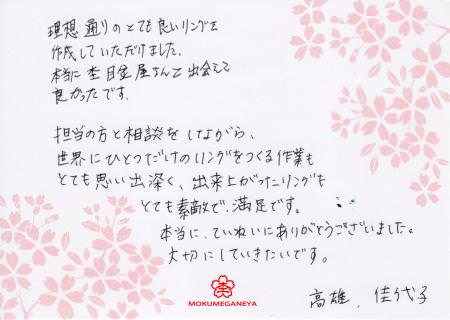 理想通りのとても良いリングを
作成していただけました。
本当に杢目金屋さんと出会えて
良かったです。
担当の方と相談をしながら、
世界にひとつだけのリングをつくる作業も
とても思い出深く、出来上がったリングも
とても素敵で、満足です。
本当に、ていねいにありがとうございました。
大切にしていきたいです。
MOKUMEGANEYA
高雄、佳代子